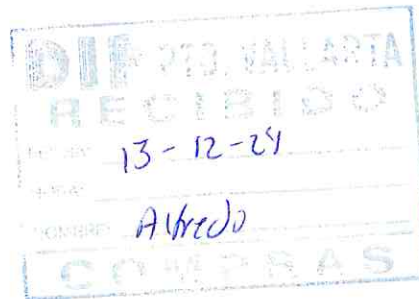 DIF PTO. VALLARTA
RECIBIDO
FECHA: 13-12-24
HORA:
NOMBRE: Alfredo
COMPRAS